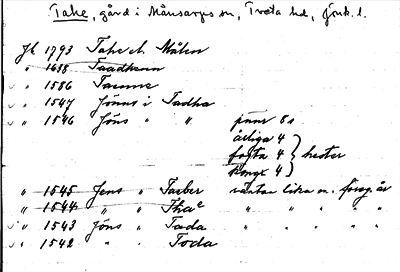 Tahe, gård i Månsarps sn, Tveta hd, Jönk. l.
Jb 1793 Tahe el. Målen
" 1638 Taadhenn
" 1586 Taenne
" 1547 Jönns i Tadha
" 1546 Jöns " " pænn 8 s
årliga 4
fogta 4 } hester
kongx 4
" 1545 Jens " Taeber räntar lika m. föreg. år
" 1544 " " Tha " " " "
" 1543 Jöns " Tada " " " "
" 1542 " " Toda